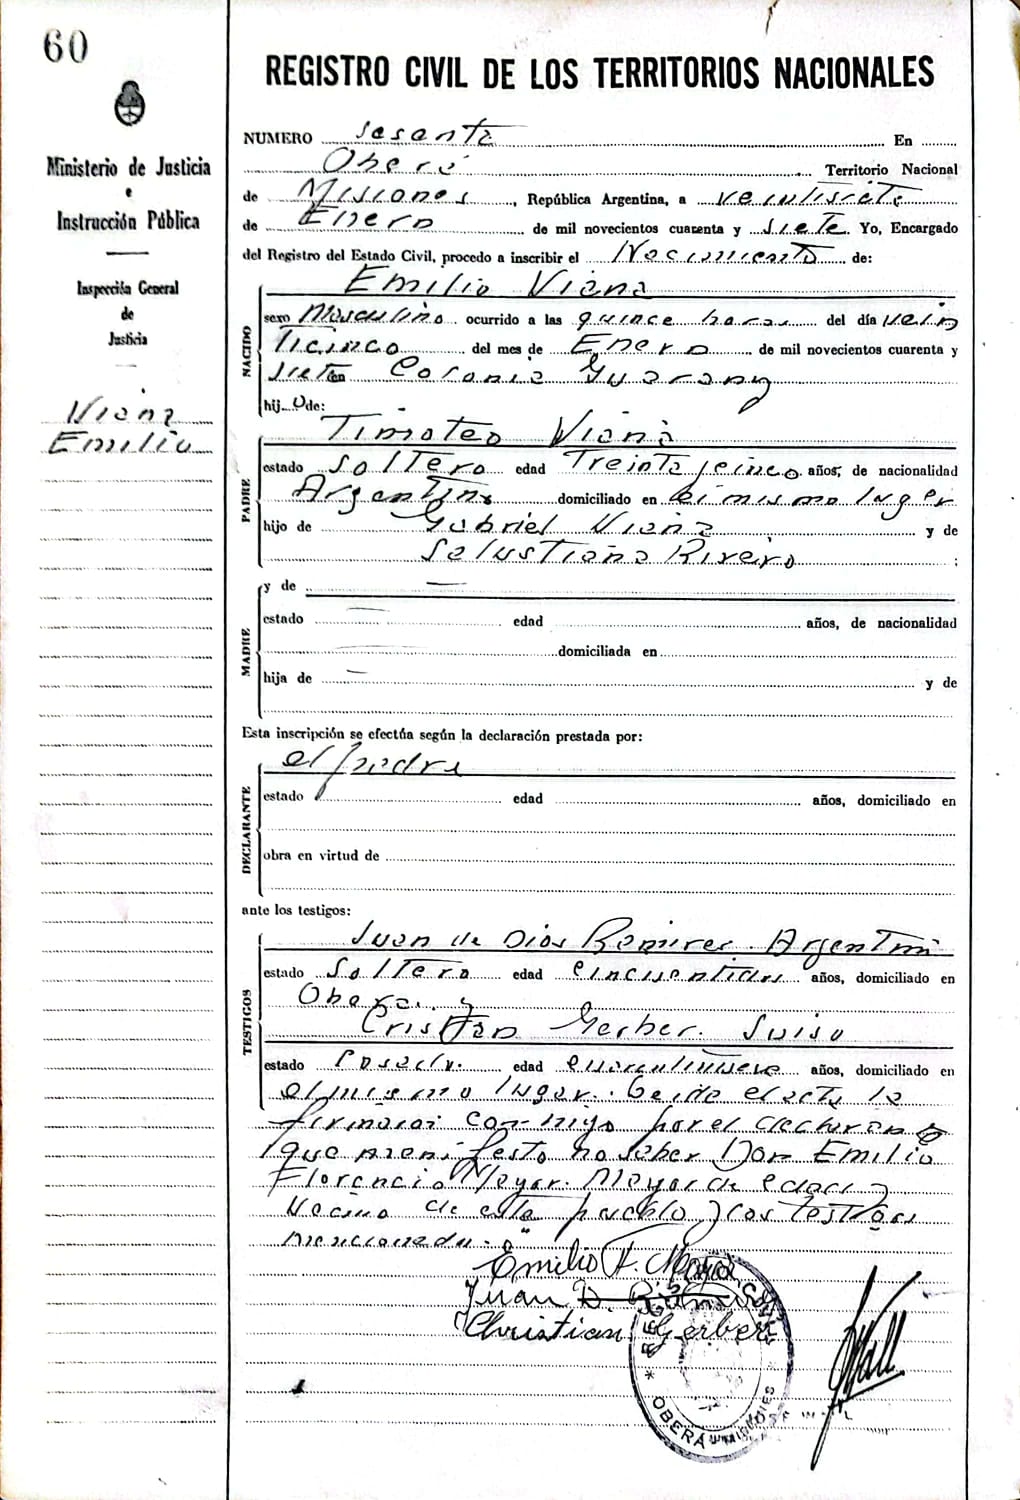 60
Ministerio de Justicia
e
Instrucción Pública
Inspección General
de
Justicia
Viana
Emilio
REGISTRO CIVIL DE LOS TERRITORIOS NACIONALES
NUMERO sesenta En
Oberá Territorio Nacional
de Misiones, República Argentina, a veintisiete
de Enero de mil novecientos cuarenta y siete. Yo, Encargado
del Registro del Estado Civil, procedo a inscribir el Nacimiento de:
NACIDO
Emilio Viana
sexo Masculino ocurrido a las quince horas del día vein
ticinco del mes de Enero de mil novecientos cuarenta y
siete en Colonia Guarany
hijo de:
PADRE
Timoteo Viana
estado soltero edad Treinta y cinco años; de nacionalidad
Argentino domiciliado en el mismo lugar
hijo de Gabriel Viana y de
Salustiana Riveiro ;
MADRE
y de —
estado — edad años, de nacionalidad
domiciliada en
hija de — y de
Esta inscripción se efectúa según la declaración prestada por:
DECLARANTE
el padre
estado edad años, domiciliado en
obra en virtud de
ante los testigos:
TESTIGOS
Juan de Dios Ramires. Argentino
estado Soltero edad cincuentidos años, domiciliado en
Obera. y
Cristian Gerber. Suiso
estado Casado. edad cuarentinueve años, domiciliado en
el mismo lugar. Leida el acta la
firmaron conmigo por el declarante
que manifesto no saber Don Emilio
Florencio Mayor de edad y
Vecino de este pueblo y los testigos
mencionados.
Emilio F.
Juan D.
Christian Gerber
REGISTRO CIVIL
OBERÁ